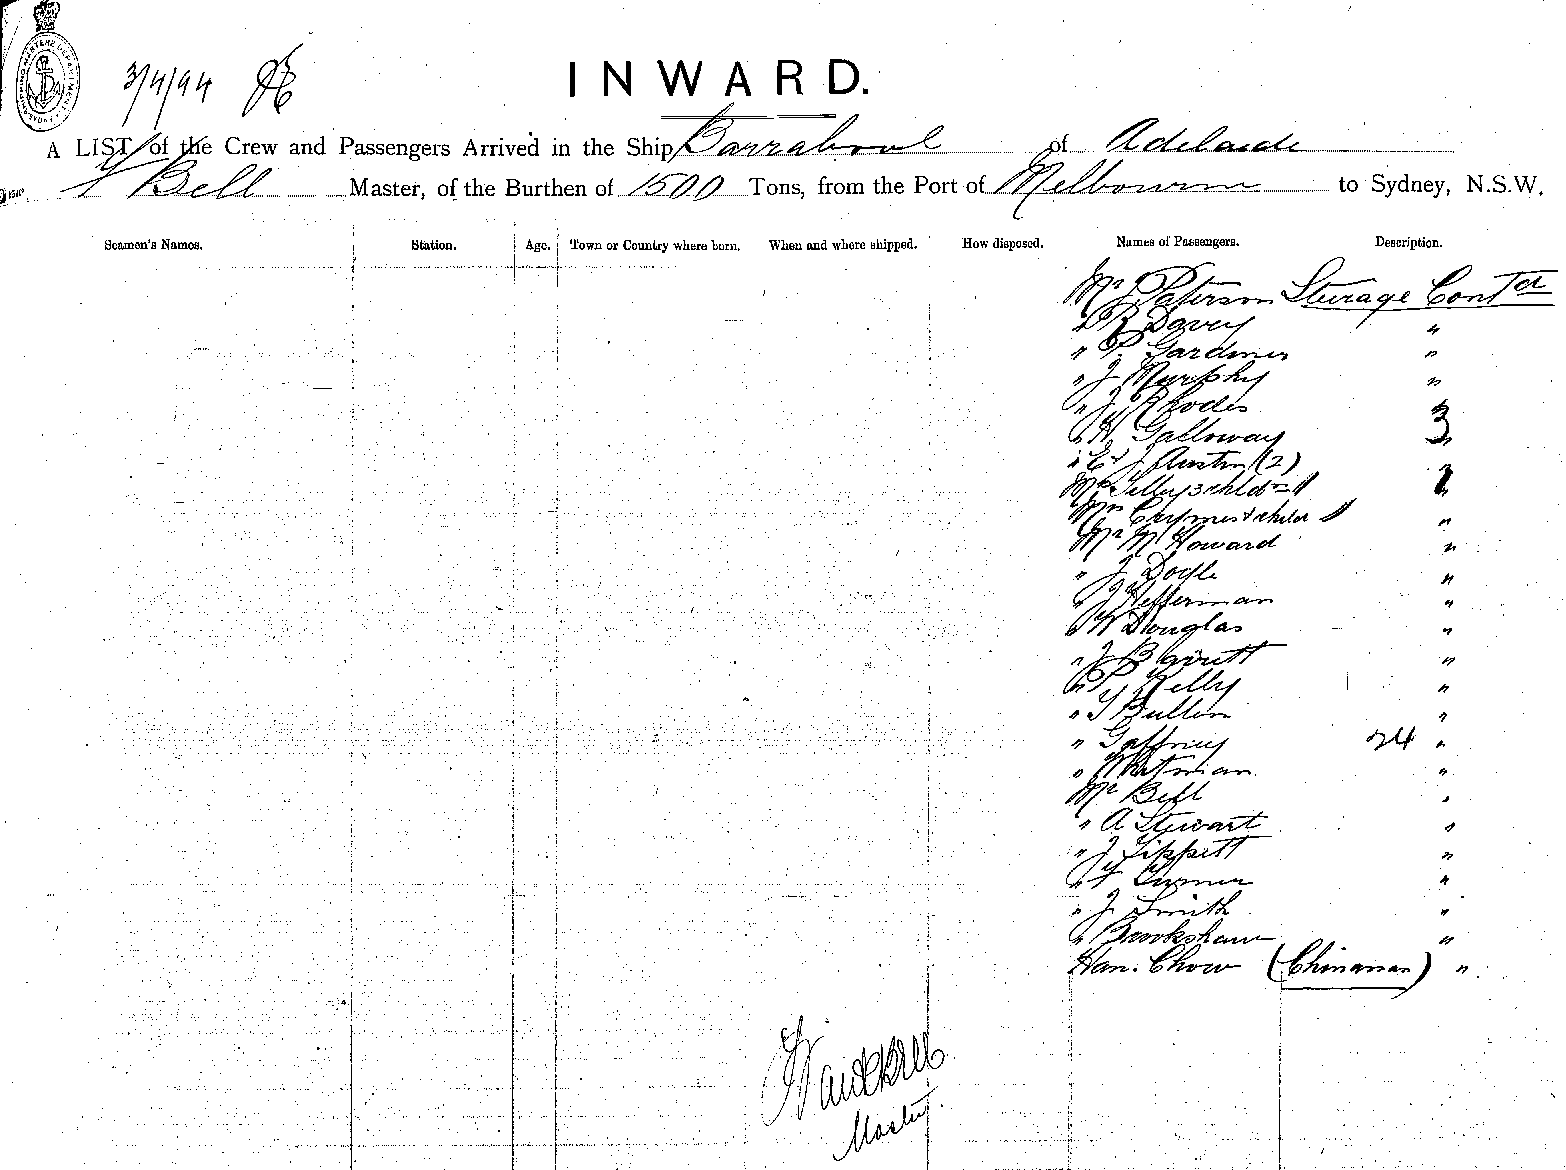 3/4/94
INWARD.
A LIST of the Crew and Passengers Arrived in the Ship Barrabool of Adelaide
Bell Master, of the Burthen of 1500 Tons, from the Port of Melbourne to Sydney, N.S.W.
Seamen's Names. Station. Age. Town or Country where born. When and where shipped. How disposed. Names of Passengers. Description.
Mr J Paterson Steerage Contd
" Davey "
" P. Gardiner "
" J Murphy "
" J Rhodes
" H Galloway 3
" E & J Austin (2)
3 child
Mrs & child "
Mr M Howard "
" J Doyle "
" J Heffernan "
" W Douglas "
" J Barrett "
" P Kelly "
" T Bullen "
" Gaffney 24 "
" Whitman "
Mr Bell "
" A Stewart "
" J Tippett "
" F Turner "
" J Smith "
" Brookshaw "
Han. Chow (Chinaman) "
Master